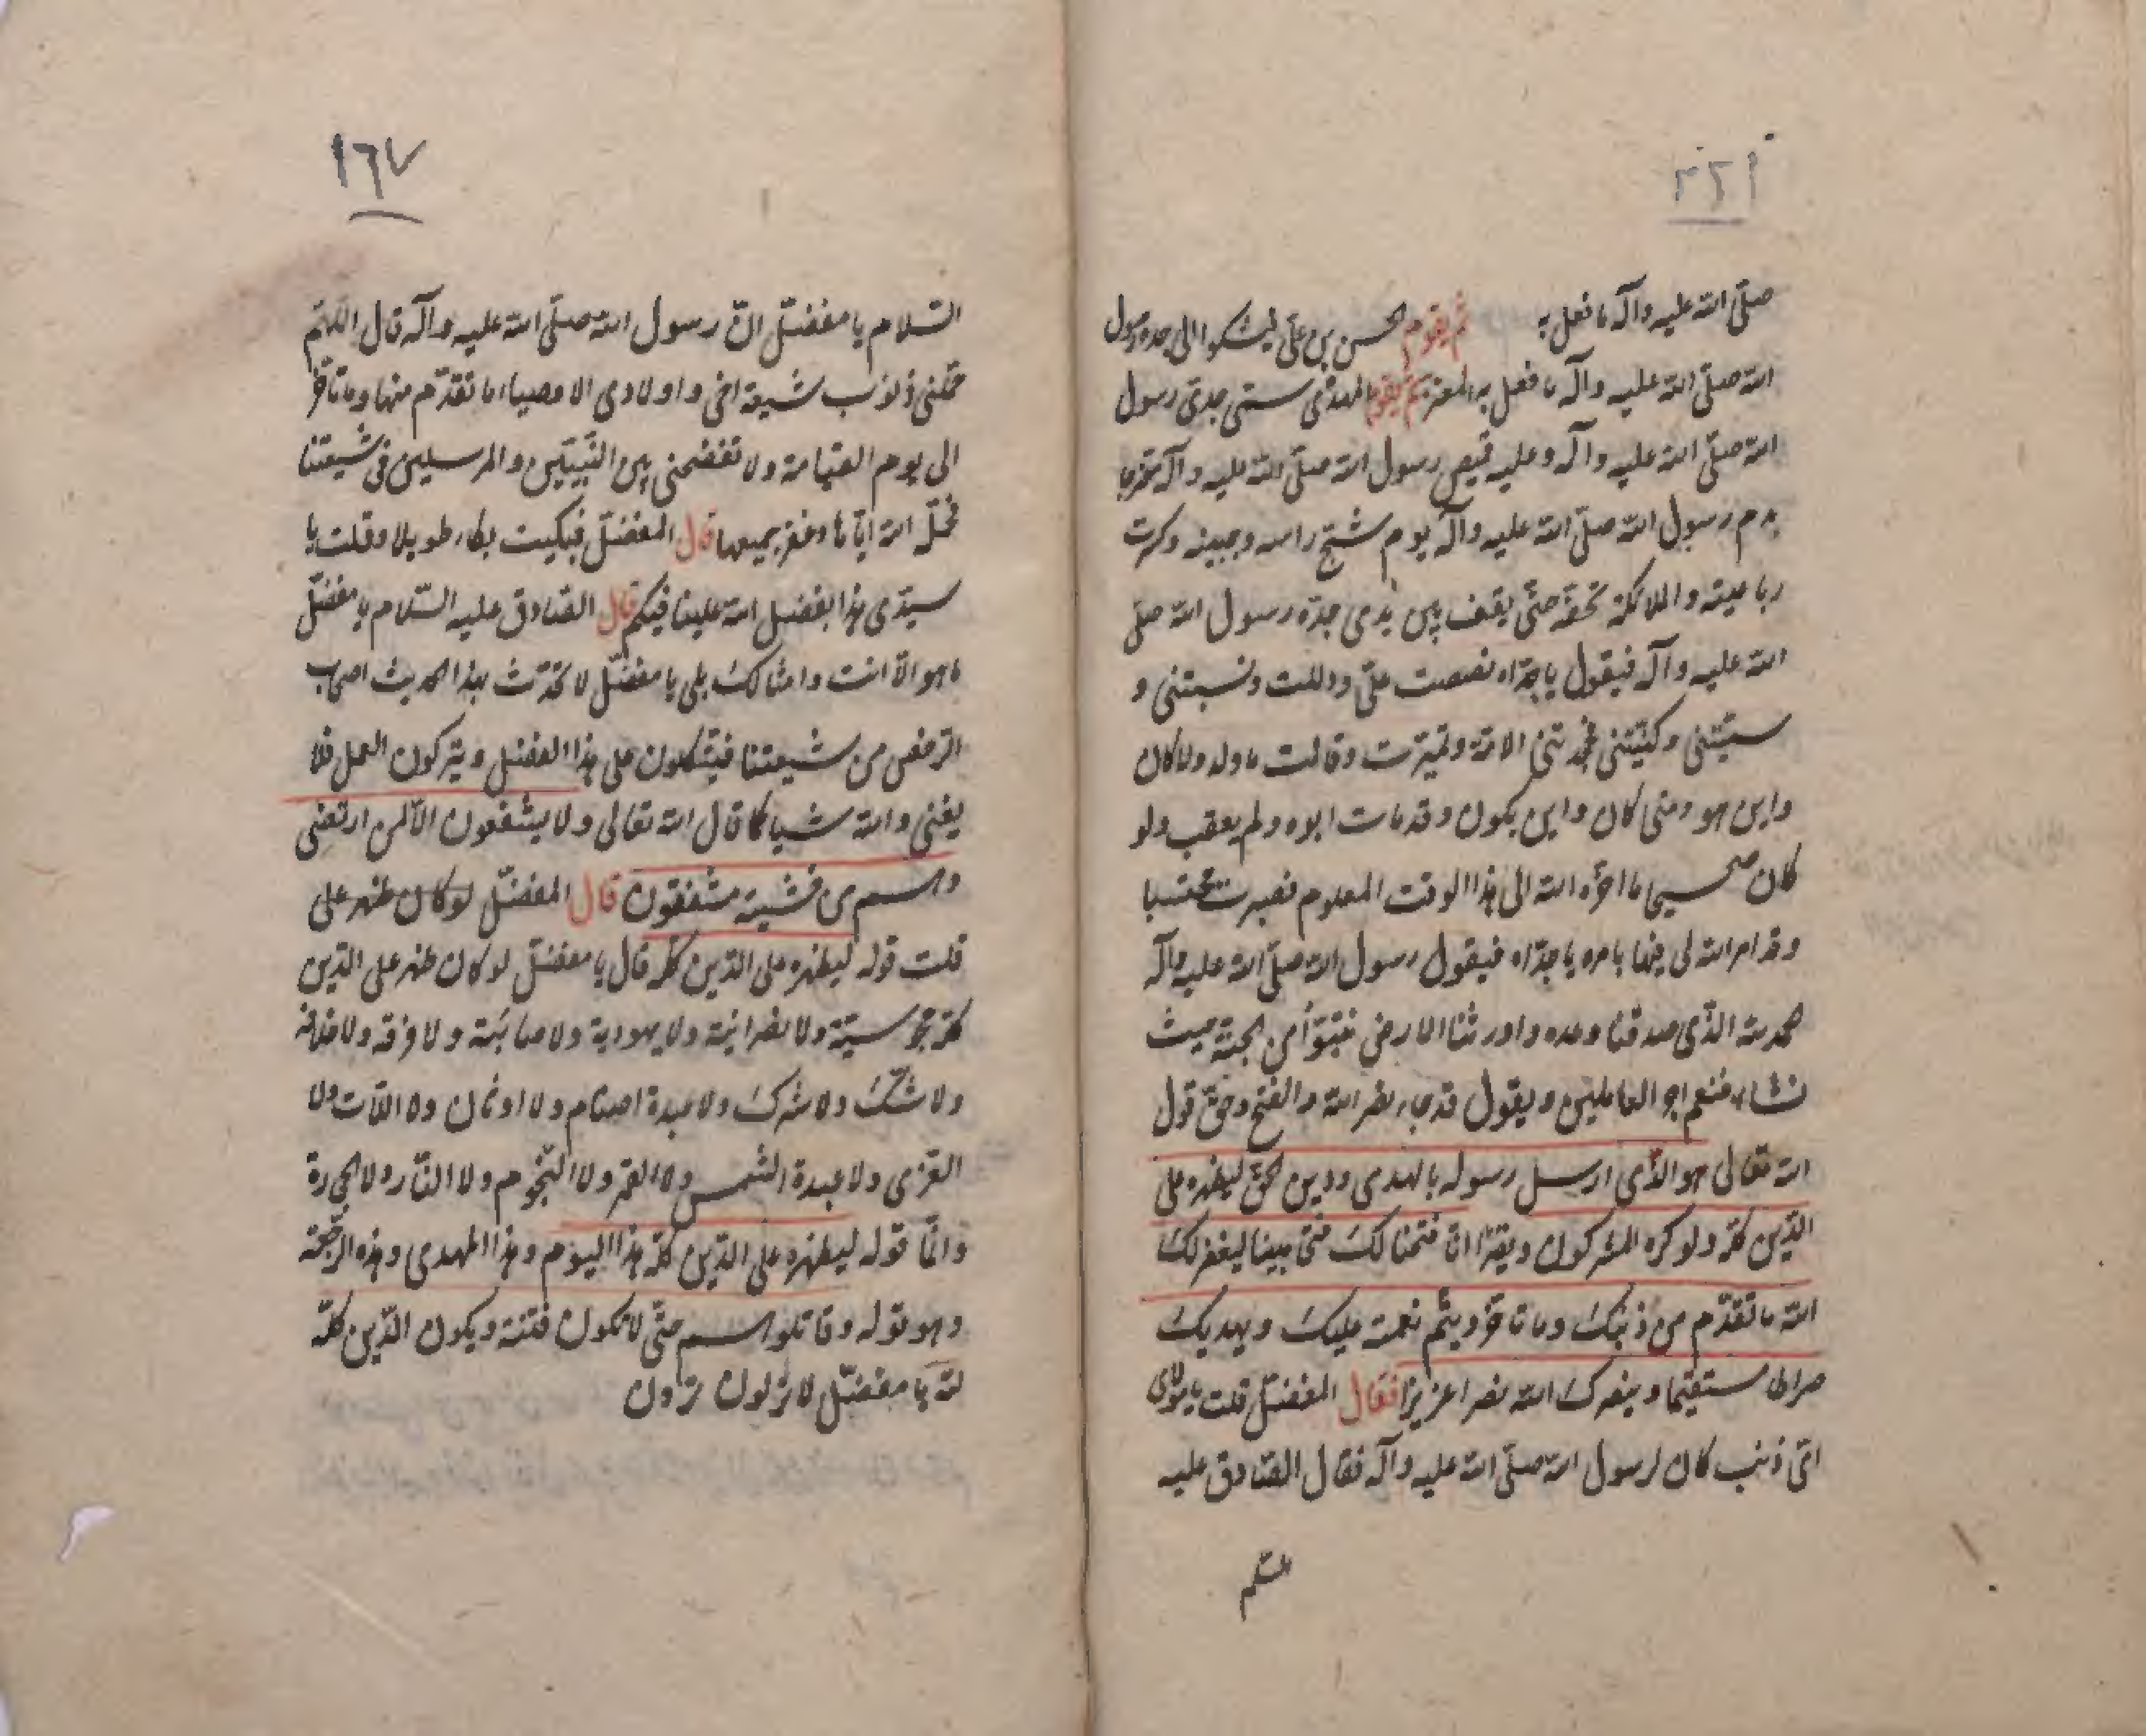 صلّى الله عليه وآله ما فعل به ثم يقوم الحسن بن علي ليشكوا الى جده رسول
الله صلّى الله عليه وآله ما فعل به المعتز ثم يقوم المهدي سمّي جدي رسول
الله صلّى الله عليه وآله وعليه قميص رسول الله صلّى الله عليه وآله مضرجا
بدم رسول الله صلّى الله عليه وآله يوم شجّ راسه وجبينه وكسرت
رباعيته والملائكة تحفّه حتّى يقف بين يدي جدّه رسول الله صلّى
الله عليه وآله فيقول يا جدّاه نصصت عليّ ودللت ونسبتني و
سمّيتني وكنّيتني فجحدتني الامّة وتميّزت وقالت ما ولد ولا كان
واين هو ومتى كان واين يكون وقد مات ابوه ولم يعقب ولو
كان صحيحا ما اخّره الله الى هذا الوقت المعلوم فصبرت محتسبا
وقد امر الله لي فيها بامره يا جدّاه فيقول رسول الله صلّى الله عليه وآله
الحمد لله الذّي صدقنا وعده واورثنا الارض نتبوّأ من الجنّة حيث
نشاء فنعم اجر العاملين ويقول قد جاء نصر الله والفتح وحقّ قول
الله تعالى هو الذّي ارسل رسوله بالهدى ودين الحقّ ليظهره على
الدّين كلّه ولو كره المشركون ويقرّا انّا فتحنا لك فتحا مبينا ليغفر لك
الله ما تقدّم من ذنبك وما تاخّر ويتّم نعمته عليك ويهديك
صراطا مستقيما وينصرك الله نصرا عزيزا فقال المفضّل قلت يا مولاي
ايّ ذنب كان لرسول الله صلّى الله عليه وآله فقال الصّادق عليه
السّلم
١٦٧
السّلام يا مفضّل انّ رسول الله صلّى الله عليه وآله قال اللهمّ
حمّلني ذنوب شيعة اخي واولادي الاوصياء ما تقدّم منها وما تاخّر
الى يوم القيامة ولا تفضحني بين النّبيّين والمرسلين في شيعتنا
فحمّله الله ايّاها وغفر جميعها قال المفضّل فبكيت بكاء طويلا وقلت يا
سيّدي هذا بفضل الله علينا فيكم قال الصّادق عليه السّلام يا مفضّل
ما هو الّا انت وامثالك بلى يا مفضّل لا تحدّث بهذا الحديث اصحاب
الرّخص من شيعتنا فيتّكلون على هذا الفضل ويتركون العمل فلا
يغني والله شيا كما قال الله تعالى ولا يشفعون الّا لمن ارتضى
وهم من خشيته مشفقون قال المفضّل لو كان ظهر على
قلت قوله ليظهره على الدّين كلّه قال يا مفضّل لو كان ظهر على الدّين
كلّه مجوسيّة ولا نصرانيّة ولا يهودية ولا صابئة ولا فرقة ولا خلاف
ولا شكّ ولا شرك ولا عبدة اصنام ولا اوثان ولا اللّات ولا
العزّى ولا عبدة الشّمس ولا القمر ولا النّجوم ولا النّار ولا الحجارة
وانّما قوله ليظهره على الدّين كلّه هذا اليوم وهذا المهدي وهذه الرّجعة
وهو قوله وقاتلوهم حتّى لا تكون فتنة ويكون الدّين كلّه
لله يا مفضّل